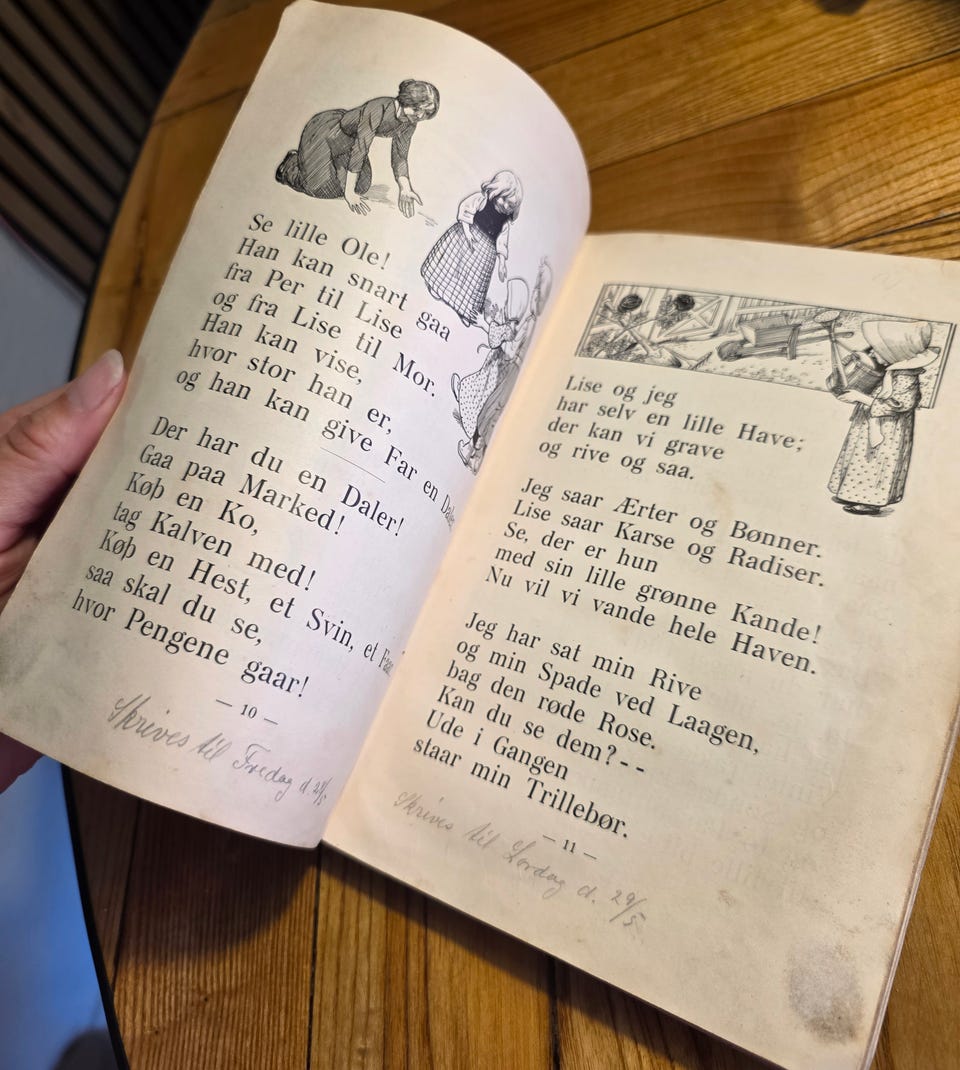 Se lille Ole!
Han kan snart gaa
fra Per til Lise
og fra Lise til Mor.
Han kan vise,
hvor stor han er,
og han kan give Far en Daler.
Der har du en Daler!
Gaa paa Marked!
Køb en Ko,
tag Kalven med!
Køb en Hest, et Svin, et Faar,
saa skal du se,
hvor Pengene gaar!
— 10 —
Skrives til Fredag d. 28/5
Lise og jeg
har selv en lille Have;
der kan vi grave
og rive og saa.
Jeg saar Ærter og Bønner.
Lise saar Karse og Radiser.
Se, der er hun
med sin lille grønne Kande!
Nu vil vi vande hele Haven.
Jeg har sat min Rive
og min Spade ved Laagen,
bag den røde Rose.
Kan du se dem? - -
Ude i Gangen
staar min Trillebør.
— 11 —
Skrives til Lørdag d. 29/5